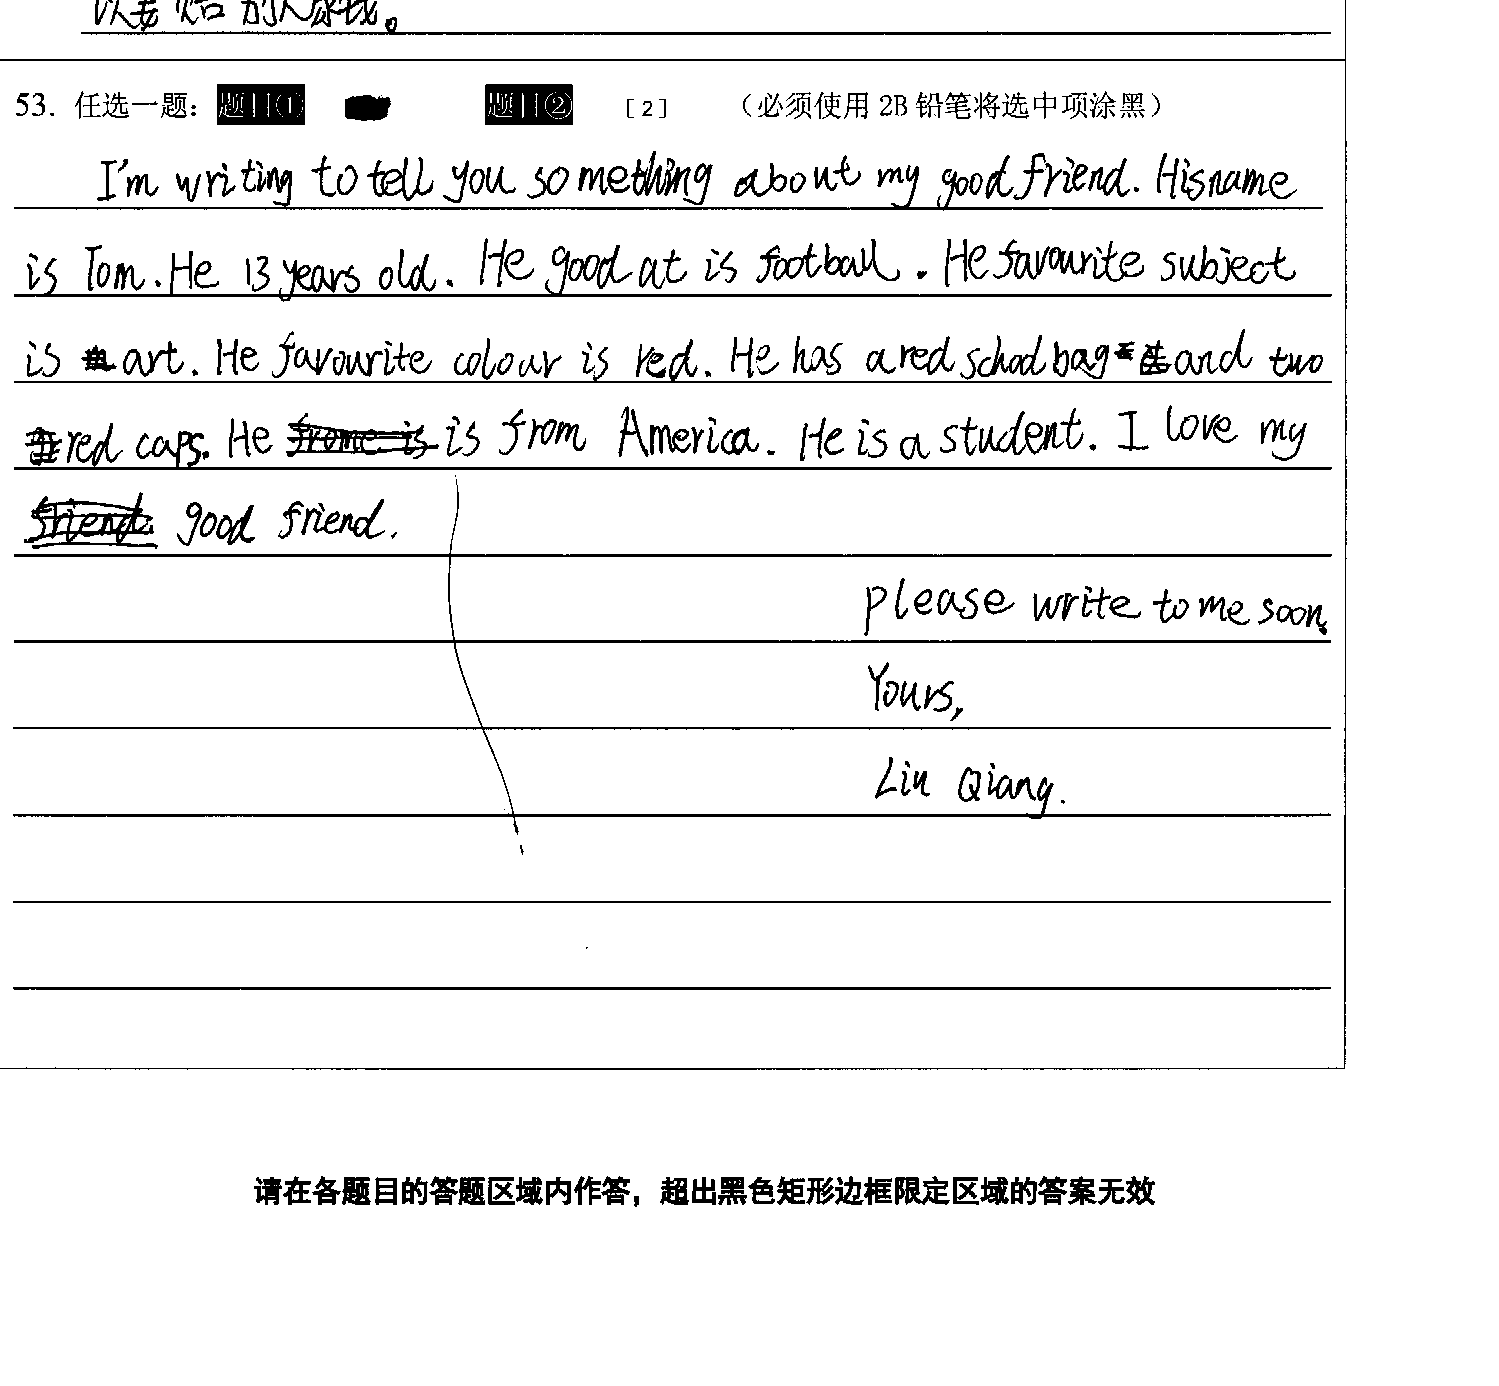 53. 任选一题: 题目① 题目② [2] (必须使用 2B 铅笔将选中项涂黑)
I'm writing to tell you something about my good friend. His name
is Tom. He 13 years old. He good at is football. He favourite subject
is art. He favourite colour is red. He has a red school bag and two
red caps. He is from America. He is a student. I love my
good friend.
please write to me soon.
Yours,
Liu Qiang.
请在各题目的答题区域内作答，超出黑色矩形边框限定区域的答案无效